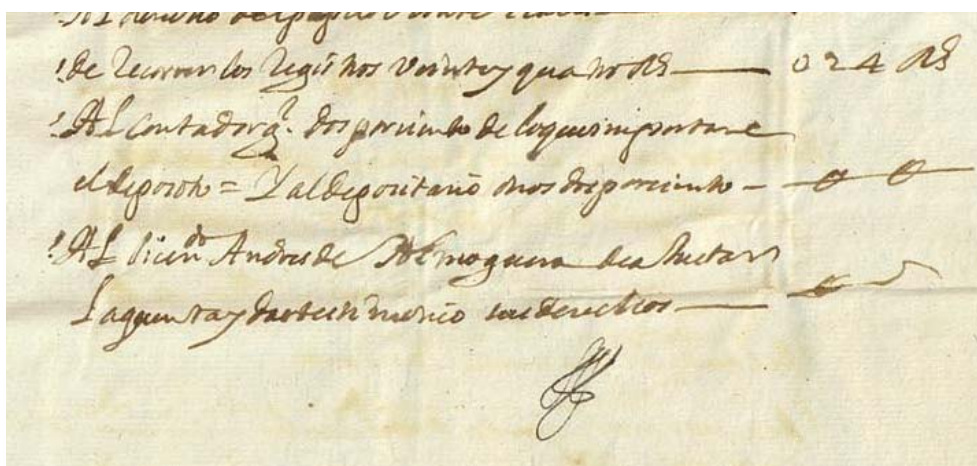 de recorrer los registros veinte y quatro Rs — 024 Rs
Al Contador q. dos por ciento de lo que importare
el deposito = Y al depositario otros dos por ciento —
Al licendo Andres de Almoguera de a
La quenta y dar testimonio sus derechos —